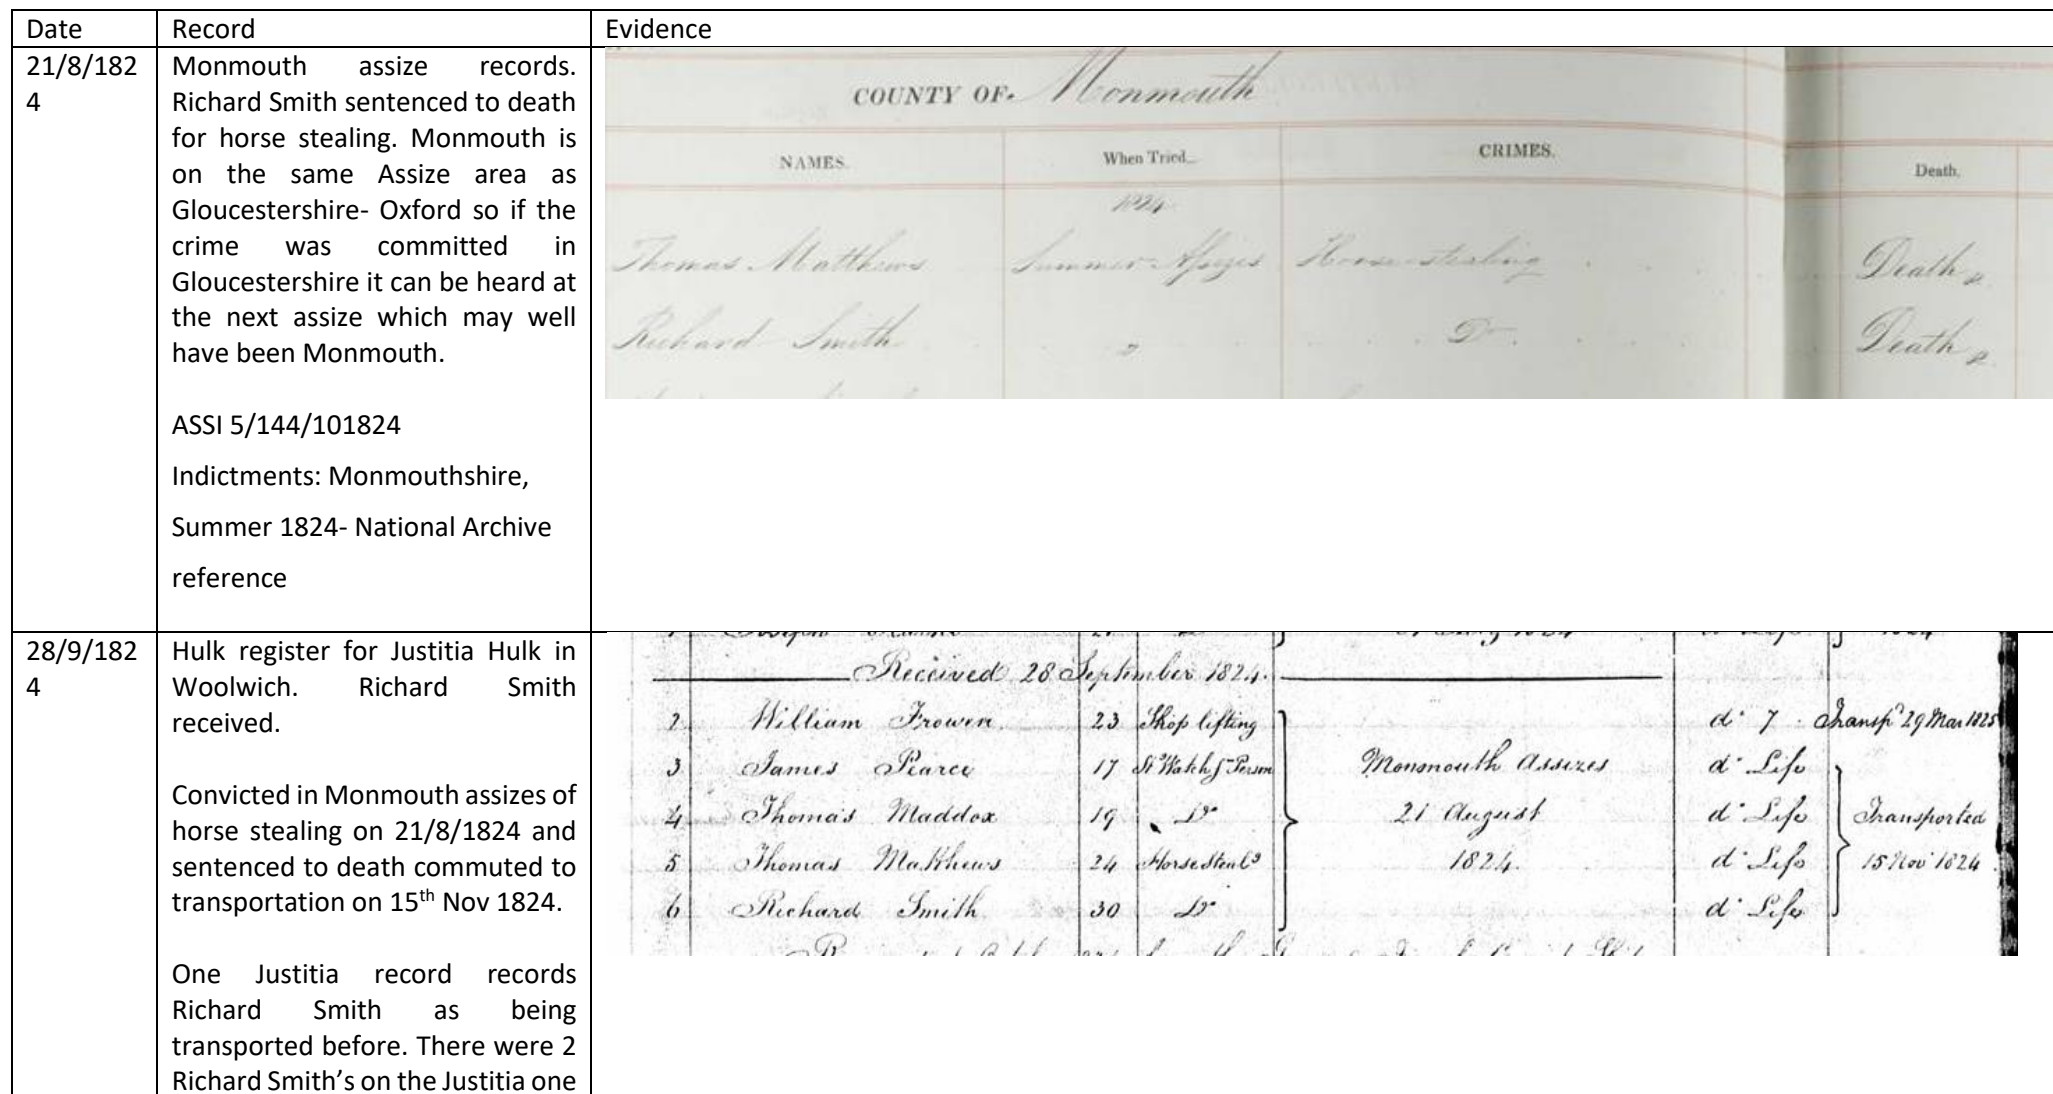 Date Record Evidence
21/8/182
4
Monmouth assize records.
Richard Smith sentenced to death
for horse stealing. Monmouth is
on the same Assize area as
Gloucestershire- Oxford so if the
crime was committed in
Gloucestershire it can be heard at
the next assize which may well
have been Monmouth.
ASSI 5/144/101824
Indictments: Monmouthshire,
Summer 1824- National Archive
reference
COUNTY OF. Monmouth
NAMES. When Tried. CRIMES. Death.
1824
Thomas Matthews Summer Assizes Horse stealing Death
Richard Smith " Do. Death
28/9/182
4
Hulk register for Justitia Hulk in
Woolwich. Richard Smith
received.
Convicted in Monmouth assizes of
horse stealing on 21/8/1824 and
sentenced to death commuted to
transportation on 15th Nov 1824.
One Justitia record records
Richard Smith as being
transported before. There were 2
Richard Smith's on the Justitia one
Received 28 September 1824.
2 William Frowen 23 Shop lifting do 7 Transpd 29 Mar 1825
3 James Pearce 17 St Watch fm Person Monmouth Assizes do Life
4 Thomas Maddox 19 Do 21 August do Life Transported
5 Thomas Matthews 24 Horse Steals 1824. do Life 15 Nov 1824
6 Richard Smith 30 Do do Life